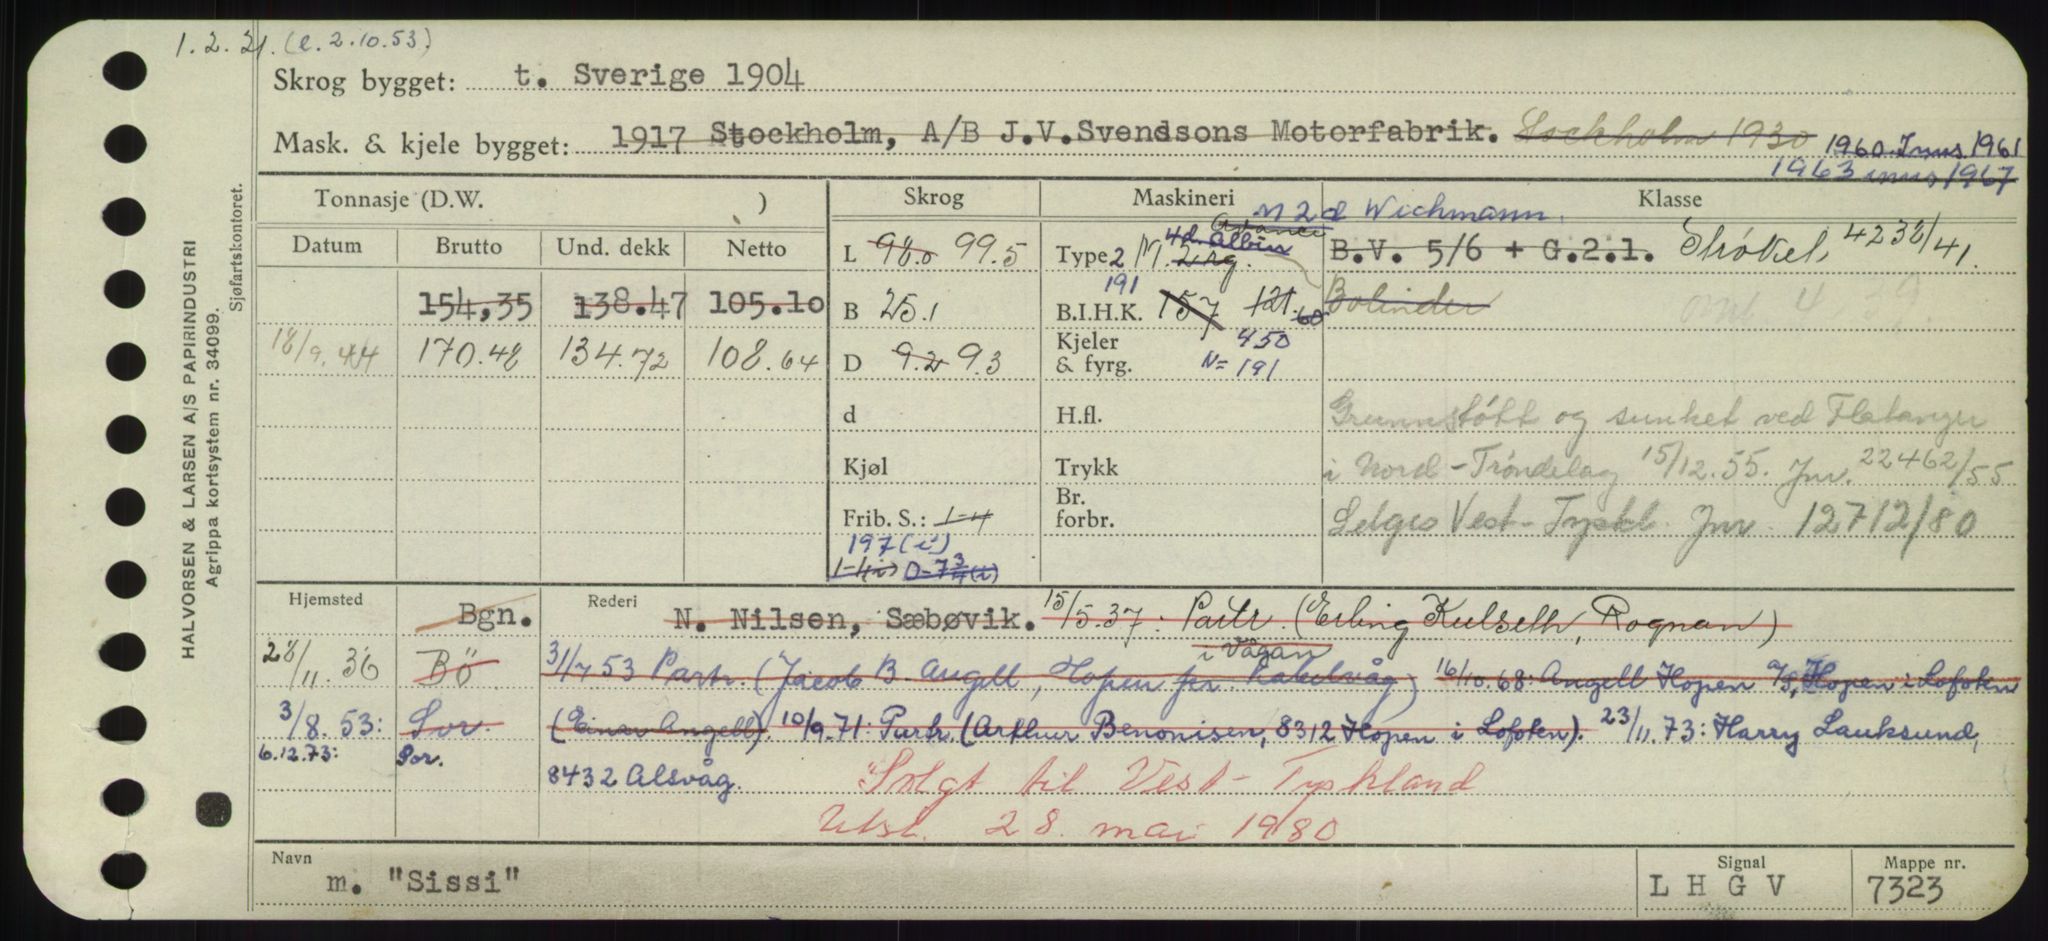 1.2.21. (e. 2.10.53)
Skrog bygget: t. Sverige 1904
Mask. & kjele bygget: 1917 Stockholm, A/B J.V.Svendsons Motorfabrik. Stockholm 1930 1960. Inns. 1961
1963 inns 1967
Tonnasje (D.W. ) Skrog Maskineri Klasse
M 2 d Wichmann.
Datum Brutto Und. dekk Netto
L 98.0 99.5 Type 2 M. 2 rg. 4 d. Albin Avance B.V. 5/6 + G.2.1. Strøket, 4232/41.
154,35 138.47 105.10 B 25.1 B.I.H.K. 157 121. 60 191 Bolinder
18/9.44 170.48 134.72 108.64 D 9.2 9.3 Kjeler & fyrg. 450
N= 191
d H.fl. Grunnstött og sunket ved Flatanger
Kjøl Trykk i Nord-Tröndelag 15/12.55. Jnr. 22462/55
Frib. S.: 1-4 Br. forbr. Selges Vest-Tyskl. Jnr. 12712/80
197 (i)
1-4(i) 0-7 3/4(i)
Hjemsted Bgn. Rederi N. Nilsen, Sæbøvik. 15/5.37: Partr. (Erling Kulseth, Rognan)
i Vågan
28/11.36 Bö 31/7 53 Partr. (Jacob B. Angell, Hopen pr. Kabelvåg) 16/10.68: Angell Hopen A/S, Hopen i Lofoten
3/8.53: Svr. (Einar Angell). 10/9.71: Partr. (Arthur Benonisen, 8312 Hopen i Lofoten). 23/11.73: Harry Lauksund,
6.12.73: Sor. 8432 Alsvåg.
Solgt til Vest-Tyskland
Utsl. 28. mai 1980
Navn Signal Mappe nr.
m. "Sissi" L H G V 7323
HALVORSEN & LARSEN A/S PAPIRINDUSTRI
Agrippa kortsystem nr. 34099.
Sjøfartskontoret.